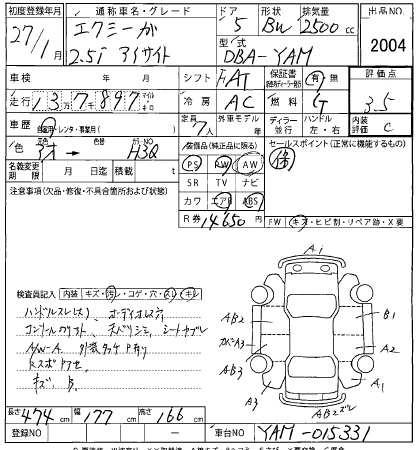 初度登録年月 通称車名・グレード ドア 形状 排気量 出品NO.
27/1 エクシーガ 5 BW 2500 cc 2004
2.5i アイサイト 型式 DBA-YAM
車検 年 月 シフト FAT 保証書 有・無 評価点
走行 13万7897 マイル キロ 冷房 AC 燃料 G 3.5
車歴 自家用・レンタ・事業用( ) 定員 7人 外車モデル 年 ディーラー 並行 ハンドル 左・右 内装評価 C
色 元色 アオ → 色替 カラーNO H3Q 装備品(純正品に限る) セールスポイント(正常に機能するもの)
名義変更期限 月 日迄 積載 t PS PW AW
注意事項(欠品・修復・不具合箇所および状態) SR TV ナビ
カワ エアB ABS
R券 14650 円 FW キズ・ヒビ割・リペア跡・X要
検査員記入 内装 キズ・汚レ・コゲ・穴・スレ・キレ
ハンドルスレ オーディオレス
コンソール シートヨゴレ
A/W-A
キズ B
A1
AB2 B1
カバーA3 A2
AB3 A1
A3 AB2ズレ
長さ 474 cm 幅 177 cm 高さ 166 cm
登録NO - 車台NO YAM-015331